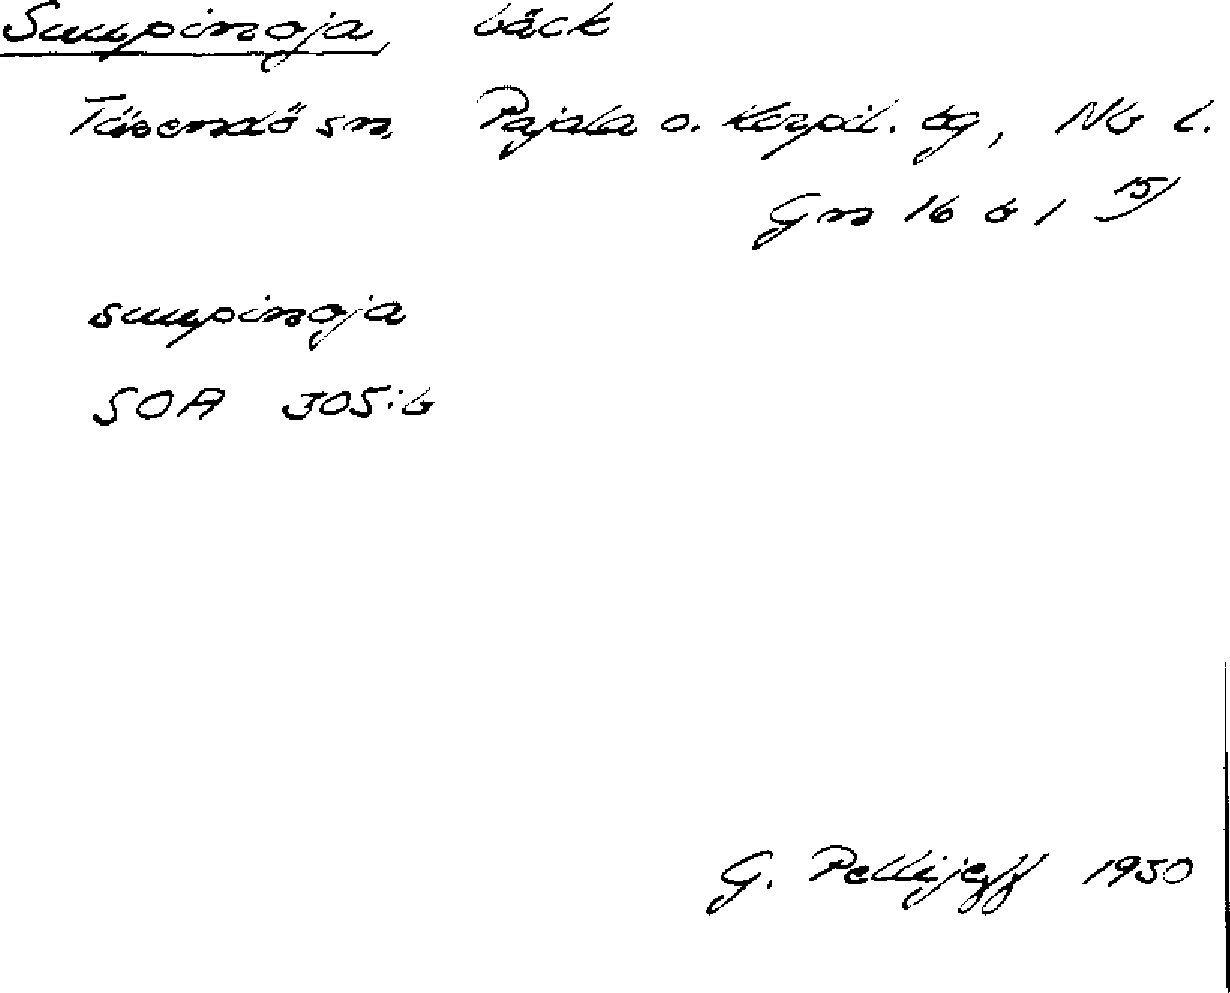 Suupinoja, bäck
Tärendö sn, Pajala o. Korpil. tg, Nb l.
Gn 16 b 1 15/
suupinoja
SOA 305:b
G. Pellijeff 1950